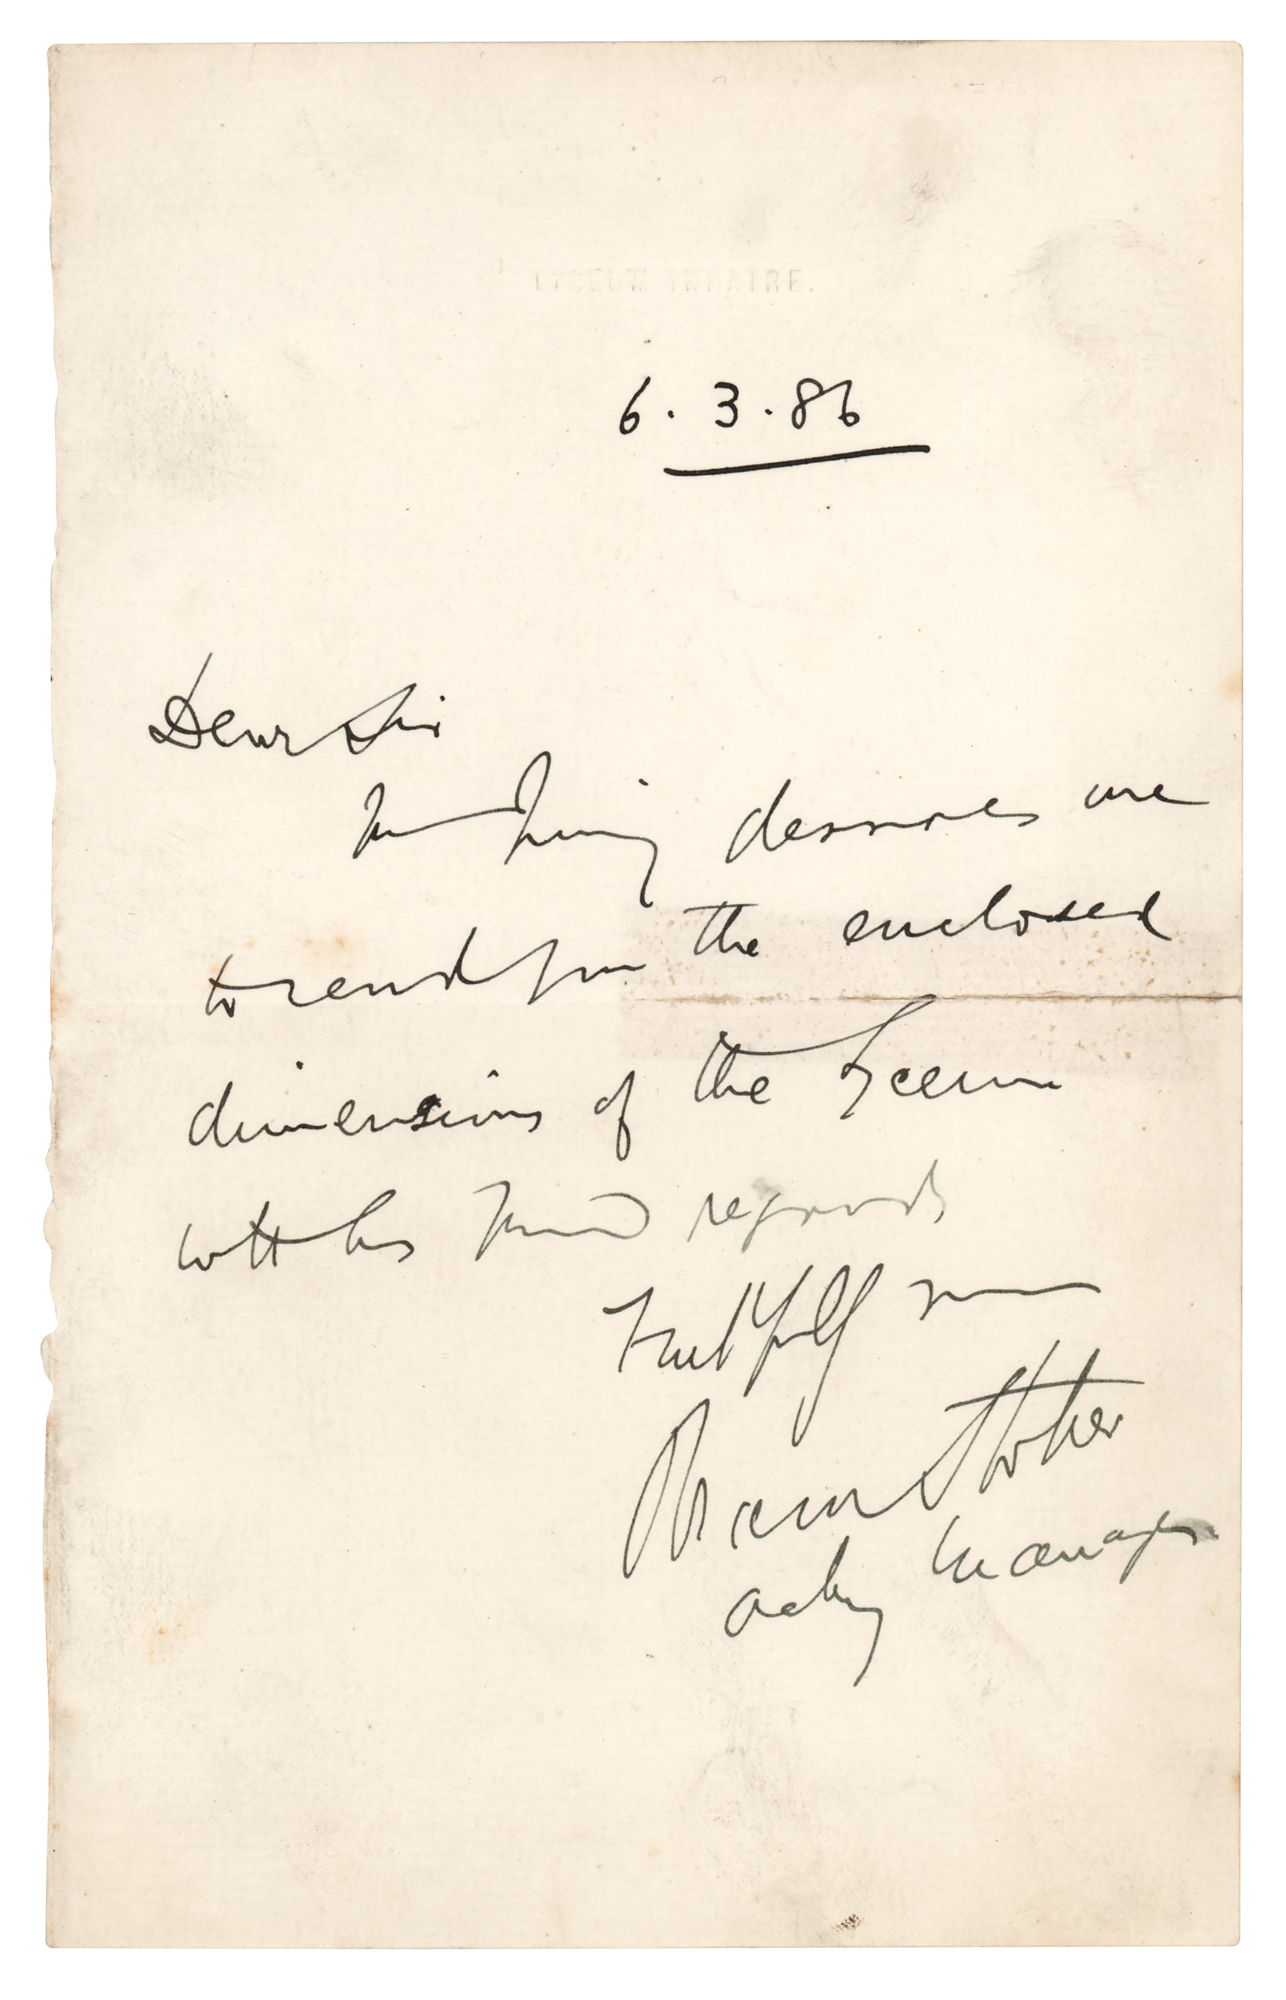 LYCEUM THEATRE.
6.3.86
Dear Sir
Mr Irving desires me
to send you the enclosed
dimensions of the Lyceum
with his kind regards
Faithfully yours
Bram Stoker
acting manager